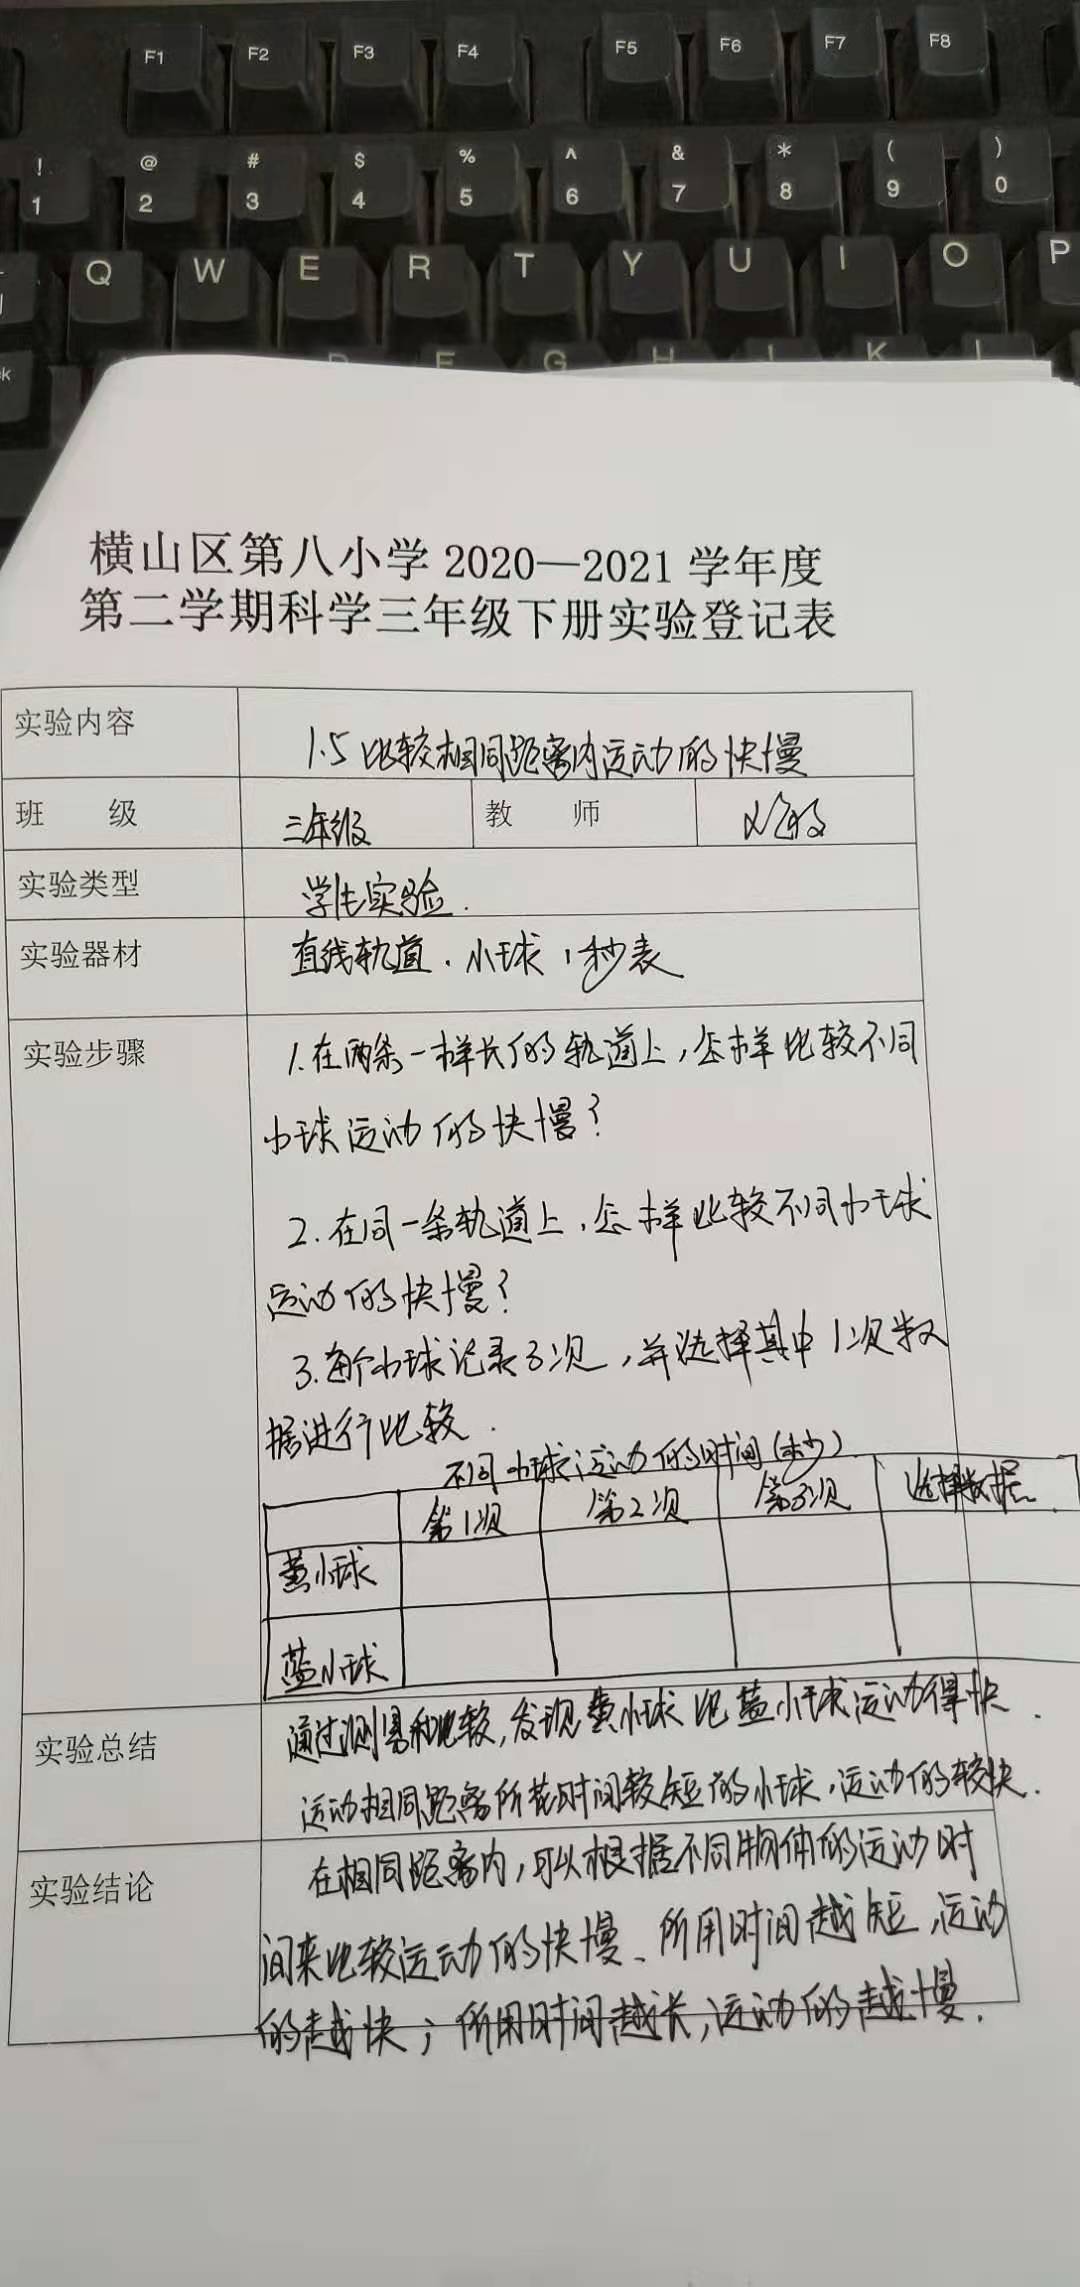 F1 F2 F3 F4 F5 F6 F7 F8
! @ # $ % ^ & * ( )
1 2 3 4 5 6 7 8 9 0
Q W E R T Y U I O P
F G H K L
横山区第八小学 2020—2021 学年度
第二学期科学三年级下册实验登记表
实验内容 1.5 比较相同距离内运动的快慢
班 级 三年级 教 师
实验类型 学生实验.
实验器材 直线轨道、小球、秒表
实验步骤 1.在两条一样长的轨道上,怎样比较不同
小球运动的快慢?
2.在同一条轨道上,怎样比较不同小球
运动的快慢?
3.每个小球记录3次,并选择其中1次数
据进行比较.
不同小球运动的时间(秒)
第1次 第2次 第3次 选择数据
黄小球
蓝小球
实验总结 通过测量和比较,发现黄小球比蓝小球运动得快.
运动相同距离所花时间较短的小球,运动的较快.
实验结论 在相同距离内,可以根据不同物体的运动时
间来比较运动的快慢、所用时间越短,运动
的越快;所用时间越长,运动的越慢.